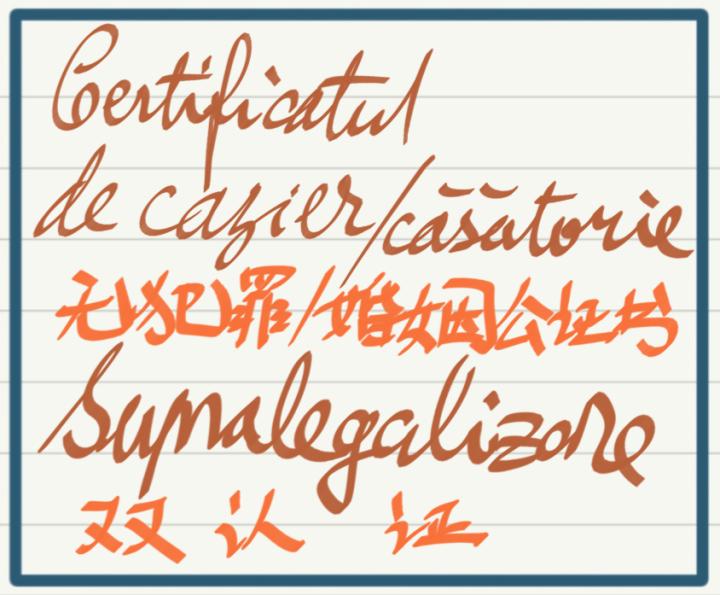 Certificatul
de cazier/căsătorie
无犯罪/婚姻公证书
Supralegalizare
双认证